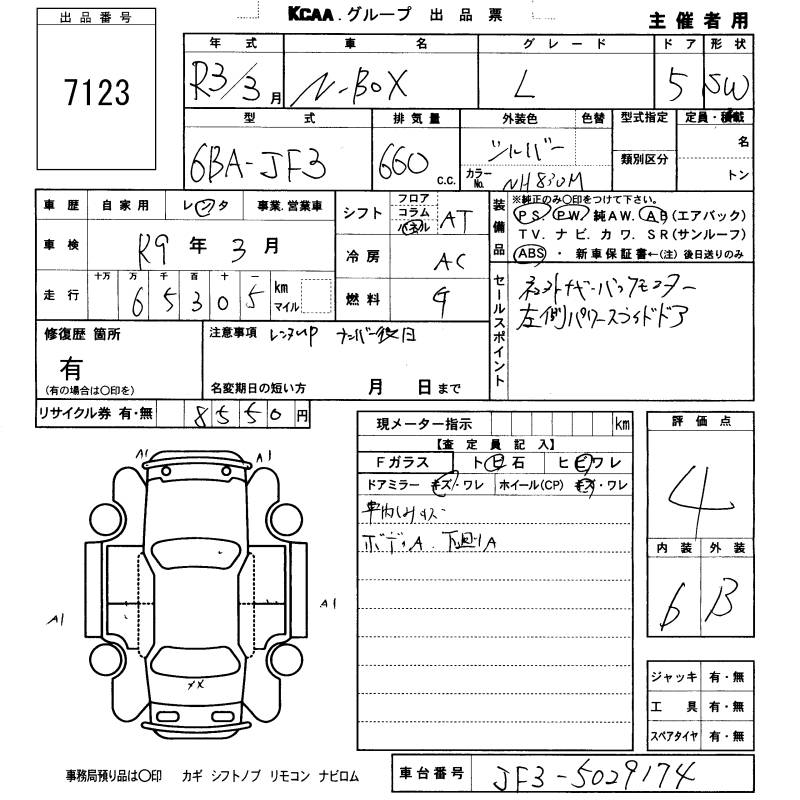 KCAA.グループ 出品票
主催者用
出品番号
7123
年式 車名 グレード ドア 形状
R3/3月 N-BOX L 5 SW
型式 排気量 外装色 色替 型式指定 定員・積載
6BA-JF3 660 c.c. シルバー 名
カラーNo. NH830M 類別区分 トン
車歴 自家用 レンタ 事業.営業車
車検 R9年3月
走行 十万 万 千 百 十 一
65305 km マイル
シフト フロア コラム パネル AT
冷房 AC
燃料 G
装備品
※純正のみ〇印をつけて下さい。
PS. PW. 純AW. AB(エアバック)
TV. ナビ. カワ. SR(サンルーフ)
ABS ・ 新車保証書←(注)後日送りのみ
セールスポイント
左側パワースライドドア
修復歴 箇所
有
(有の場合は〇印を)
注意事項 レンタUP ナンバー後日
名変期日の短い方 月 日まで
リサイクル券 有・無 8550円
現メーター指示 km
【査定員記入】
Fガラス トビ石 ヒビワレ
ドアミラー キズ・ワレ ホイール(CP) キズ・ワレ
ボディA. 下廻りA
評価点
4
内装 外装
6 B
A1 A1
A1 A1
XX
ジャッキ 有・無
工具 有・無
スペアタイヤ 有・無
事務局預り品は〇印 カギ シフトノブ リモコン ナビロム
車台番号 JF3-5029174